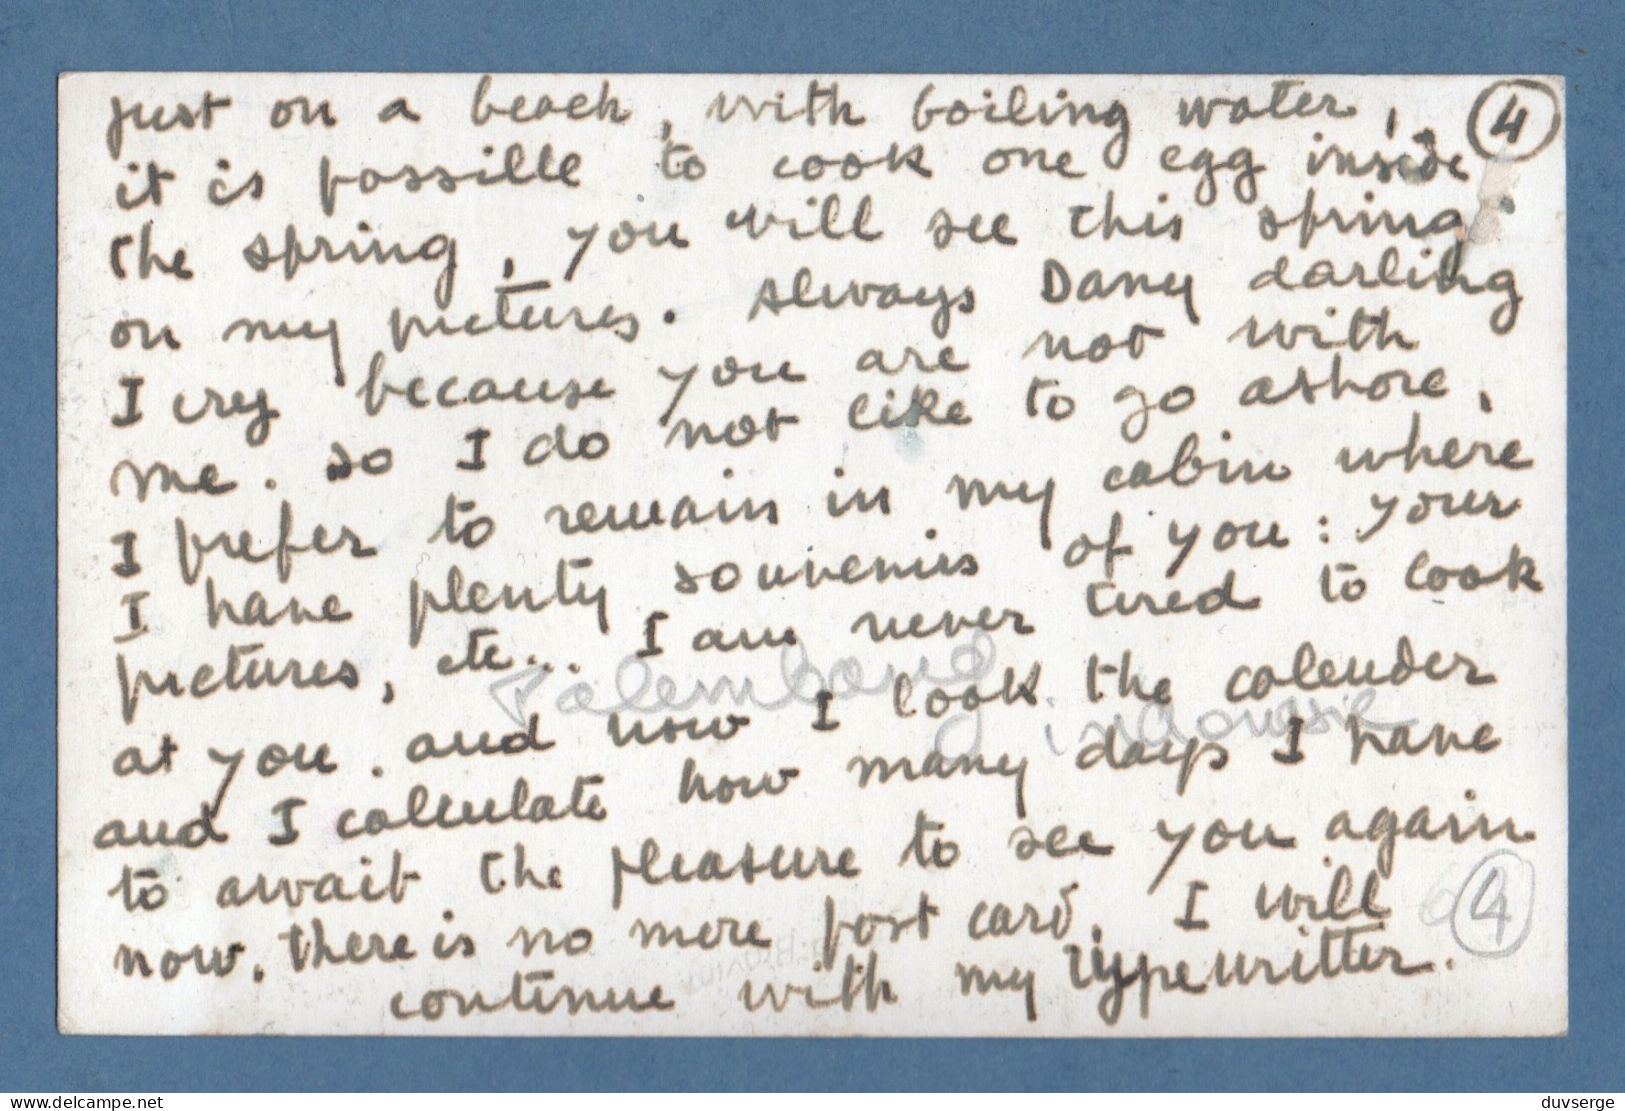 just on a beach, with boiling water, 4
it is possille to cook one egg inside
the spring, you will see this spring
on my pictures. Always Dany darling
I cry because you are not with
me. so I do not like to go ashore,
I prefer to remain in my cabin where
I have plenty souvenirs of you: your
pictures, etc... I am never tired to look
Palembang
indonesie
at you. and now I look the calender
and I calculate how many days I have
to await the pleasure to see you again
now. there is no more post card, I will
4
continue with my typewritter.
duvserge
delcampe.net